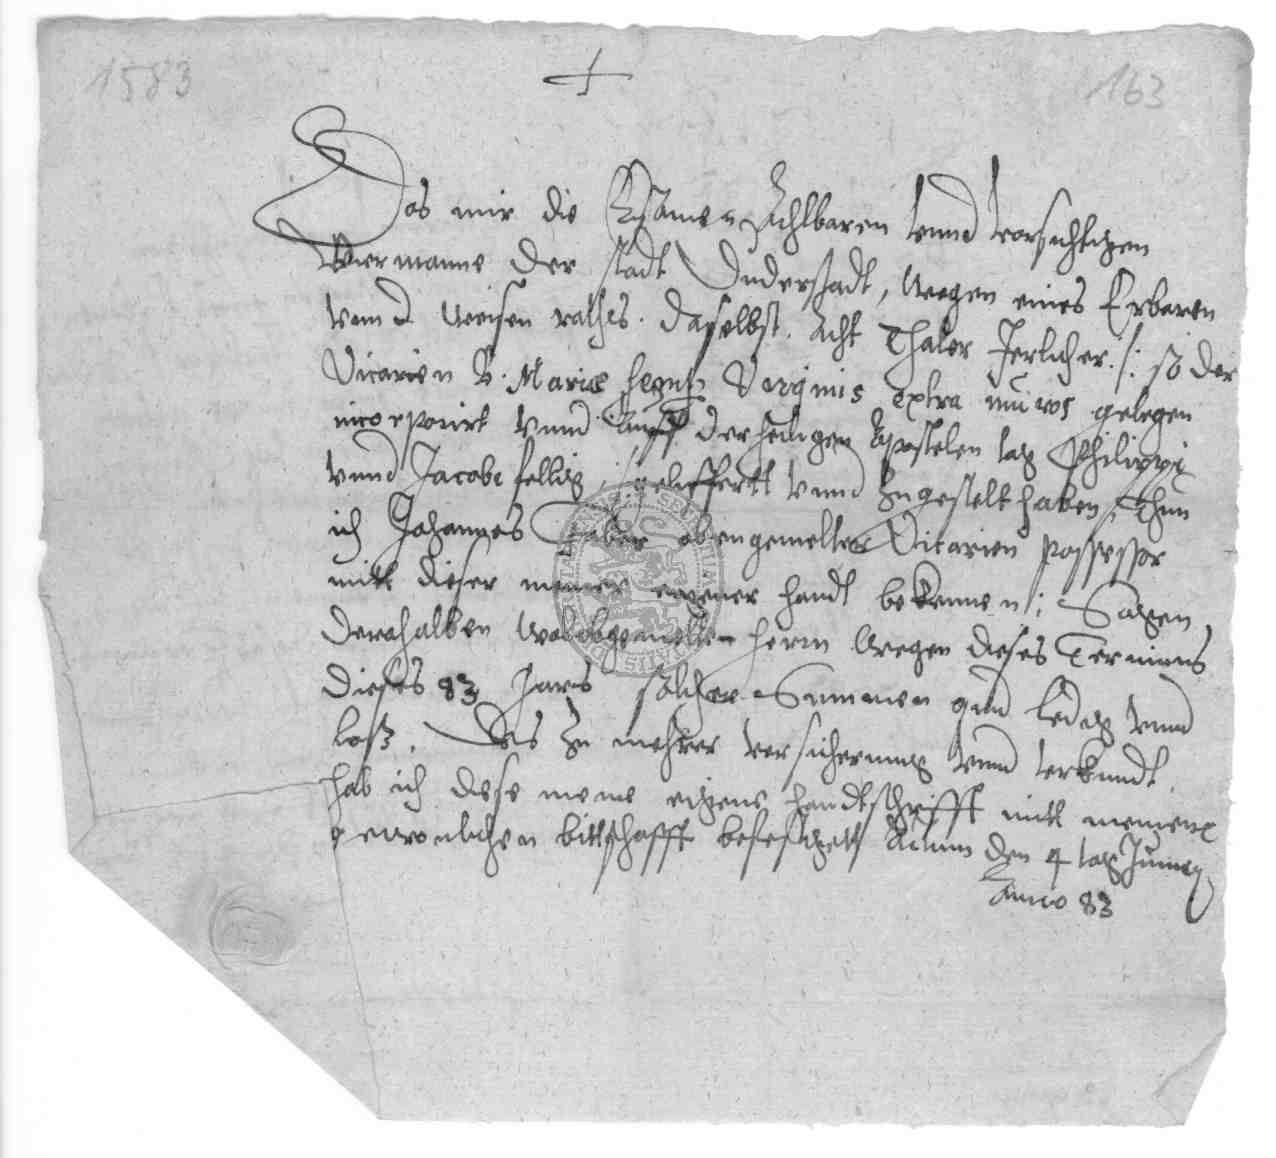 1583
163
Das mir die Ersamen Achtbaren vnnd vorsichtigen
Viermanne der stadt Duderstadt, wegen eines Erbaren
vnnd weisen raths daselbst. Acht Thaler Jerlicher /: so der
Vicarien B. Mariæ Virginis extra muros gelegen
incorporirt vnnd auff der heiligen Apostelen tag Philippi
vnnd Jacobi fellig :/ geliffertt vnnd Zugestelt haben, Thun
ich Johannes Faber obengemelter Vicarien possessor
mitt dieser meiner eigener handt bekennen; Sagen
derohalben wolobgemelten herrn wegen dieses Termins
dieses 83 Jars solcher Summen quid ledig vnnd
loß. Des zu mehrer versicherung vnnd verkundt
hab ich diese meine eigene handtschrifft mitt meinem
gewonlichen bittschafft befestigett Actum den 4 tag Junii
Anno 83